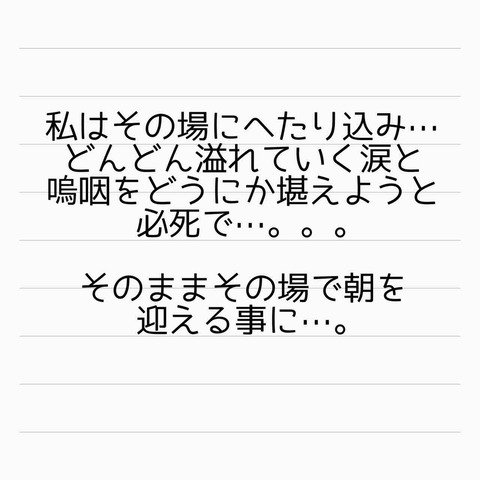 私はその場にへたり込み…
どんどん溢れていく涙と
嗚咽をどうにか堪えようと
必死で…。。。
そのままその場で朝を
迎える事に…。